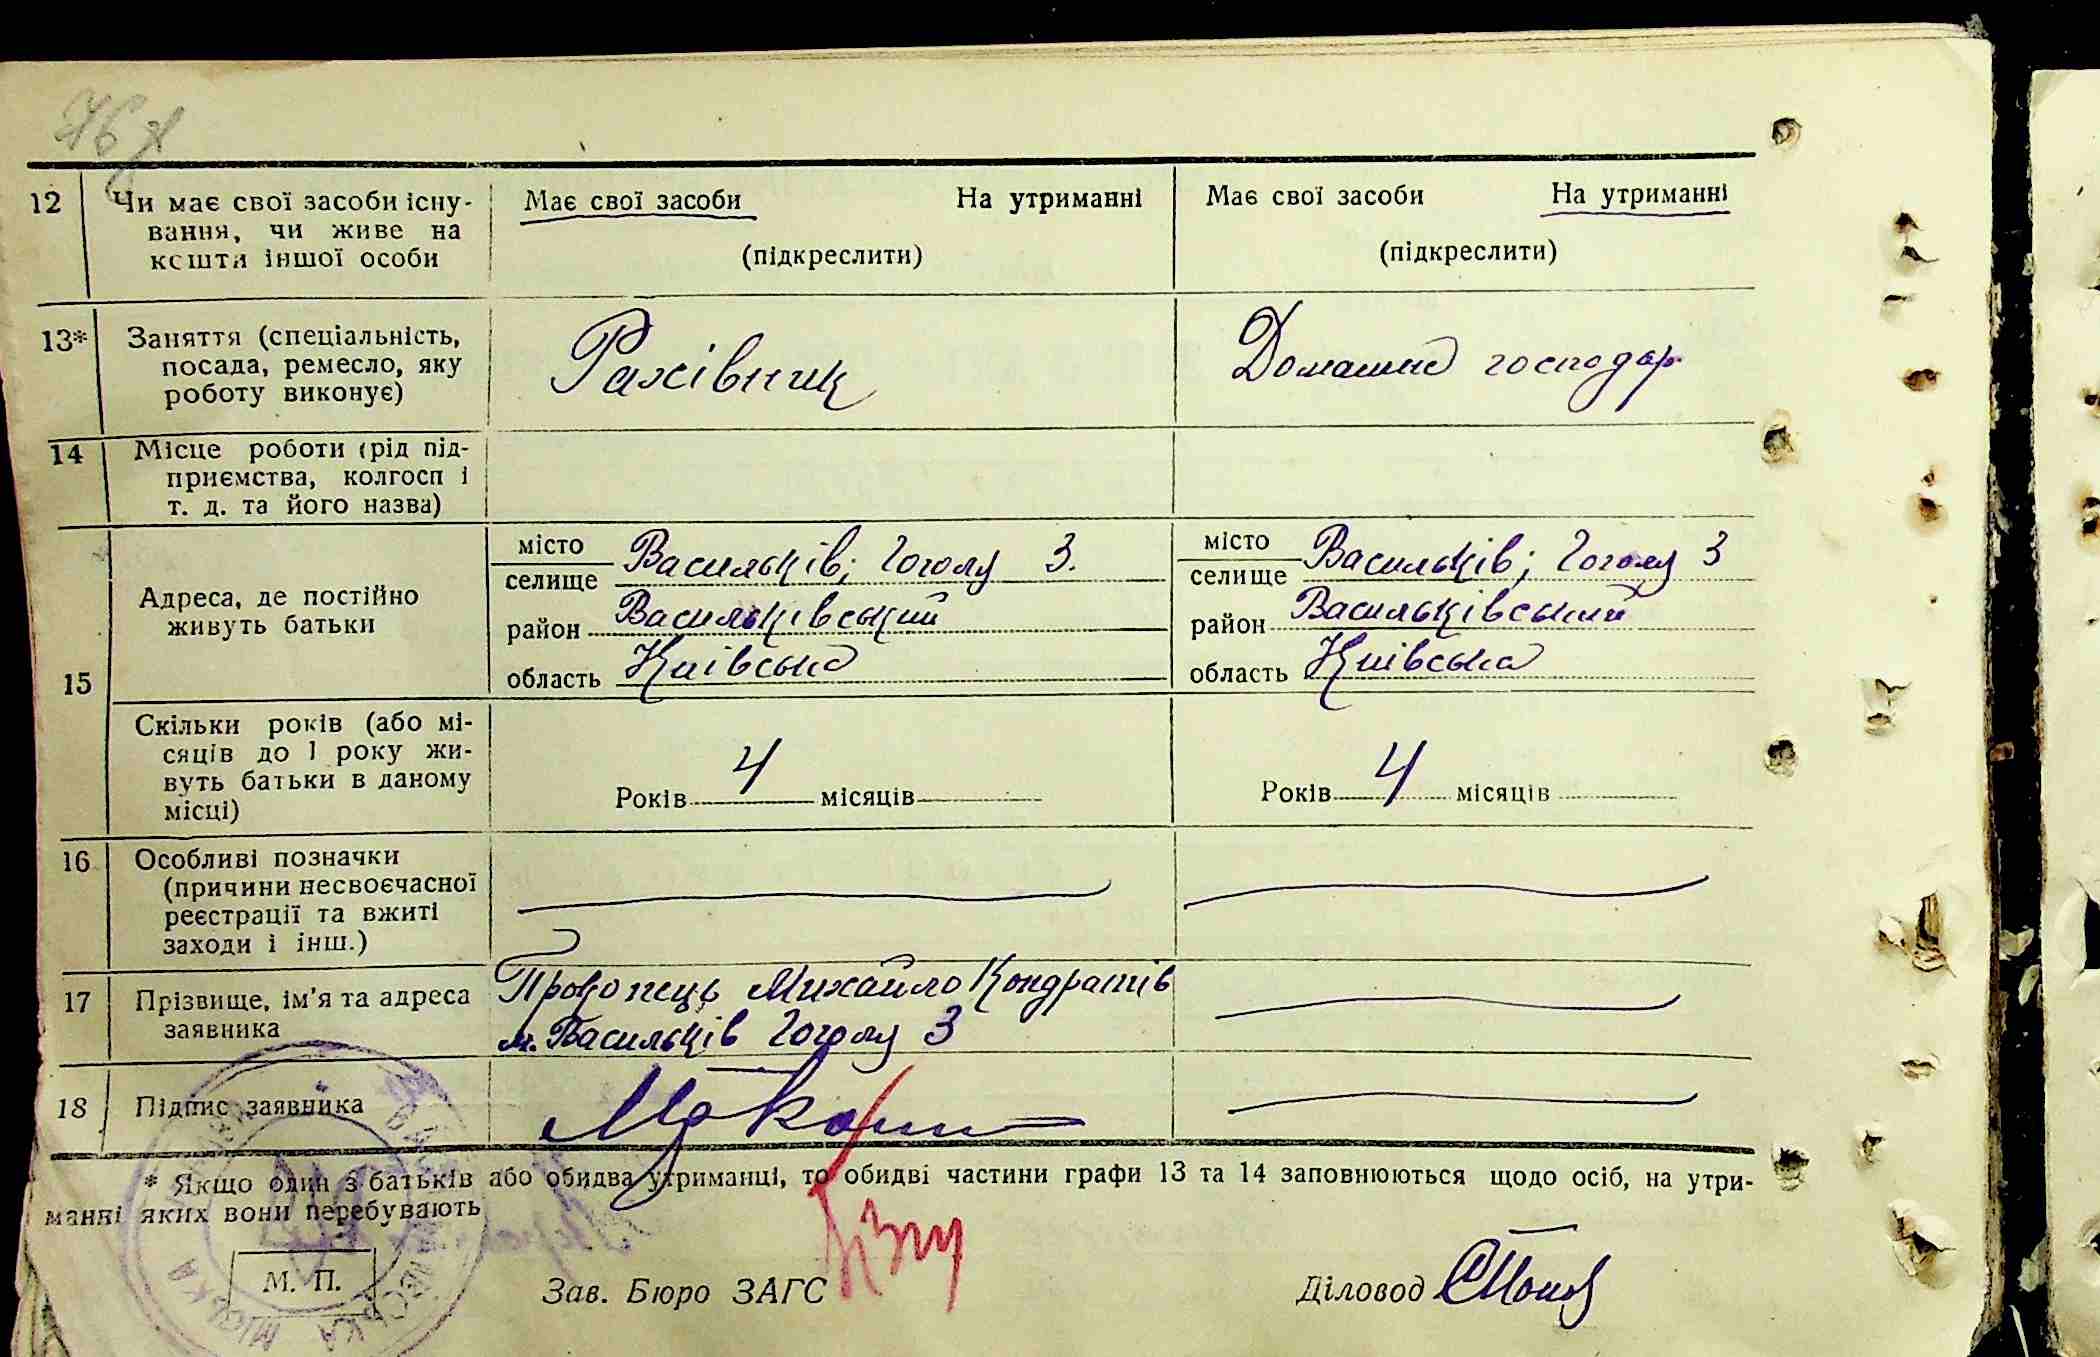 12
Чи має свої засоби існу-
вання, чи живе на
кошти іншої особи
Має свої засоби На утриманні
(підкреслити)
Має свої засоби На утриманні
(підкреслити)
13*
Заняття (спеціальність,
посада, ремесло, яку
роботу виконує)
Рахівник
Домашнє господар
14
Місце роботи (рід під-
приємства, колгосп і
т. д. та його назва)
15
Адреса, де постійно
живуть батьки
місто
селище
Васильків; Гоголя 3.
район Васильківський
область Київська
місто
селище
Васильків; Гоголя 3
район Васильківський
область Київська
Скільки років (або мі-
сяців до 1 року жи-
вуть батьки в даному
місці)
Років 4 місяців
Років 4 місяців
16
Особливі позначки
(причини несвоєчасної
реєстрації та вжиті
заходи і інш.)
17
Прізвище, ім'я та адреса
заявника
Прокопець Михайло Кондратів
м. Васильків Гоголя 3
18
Підпис заявника
* Якщо один з батьків або обидва утриманці, то обидві частини графи 13 та 14 заповнюються щодо осіб, на утри-
манні яких вони перебувають
М. П.
Зав. Бюро ЗАГС
Діловод